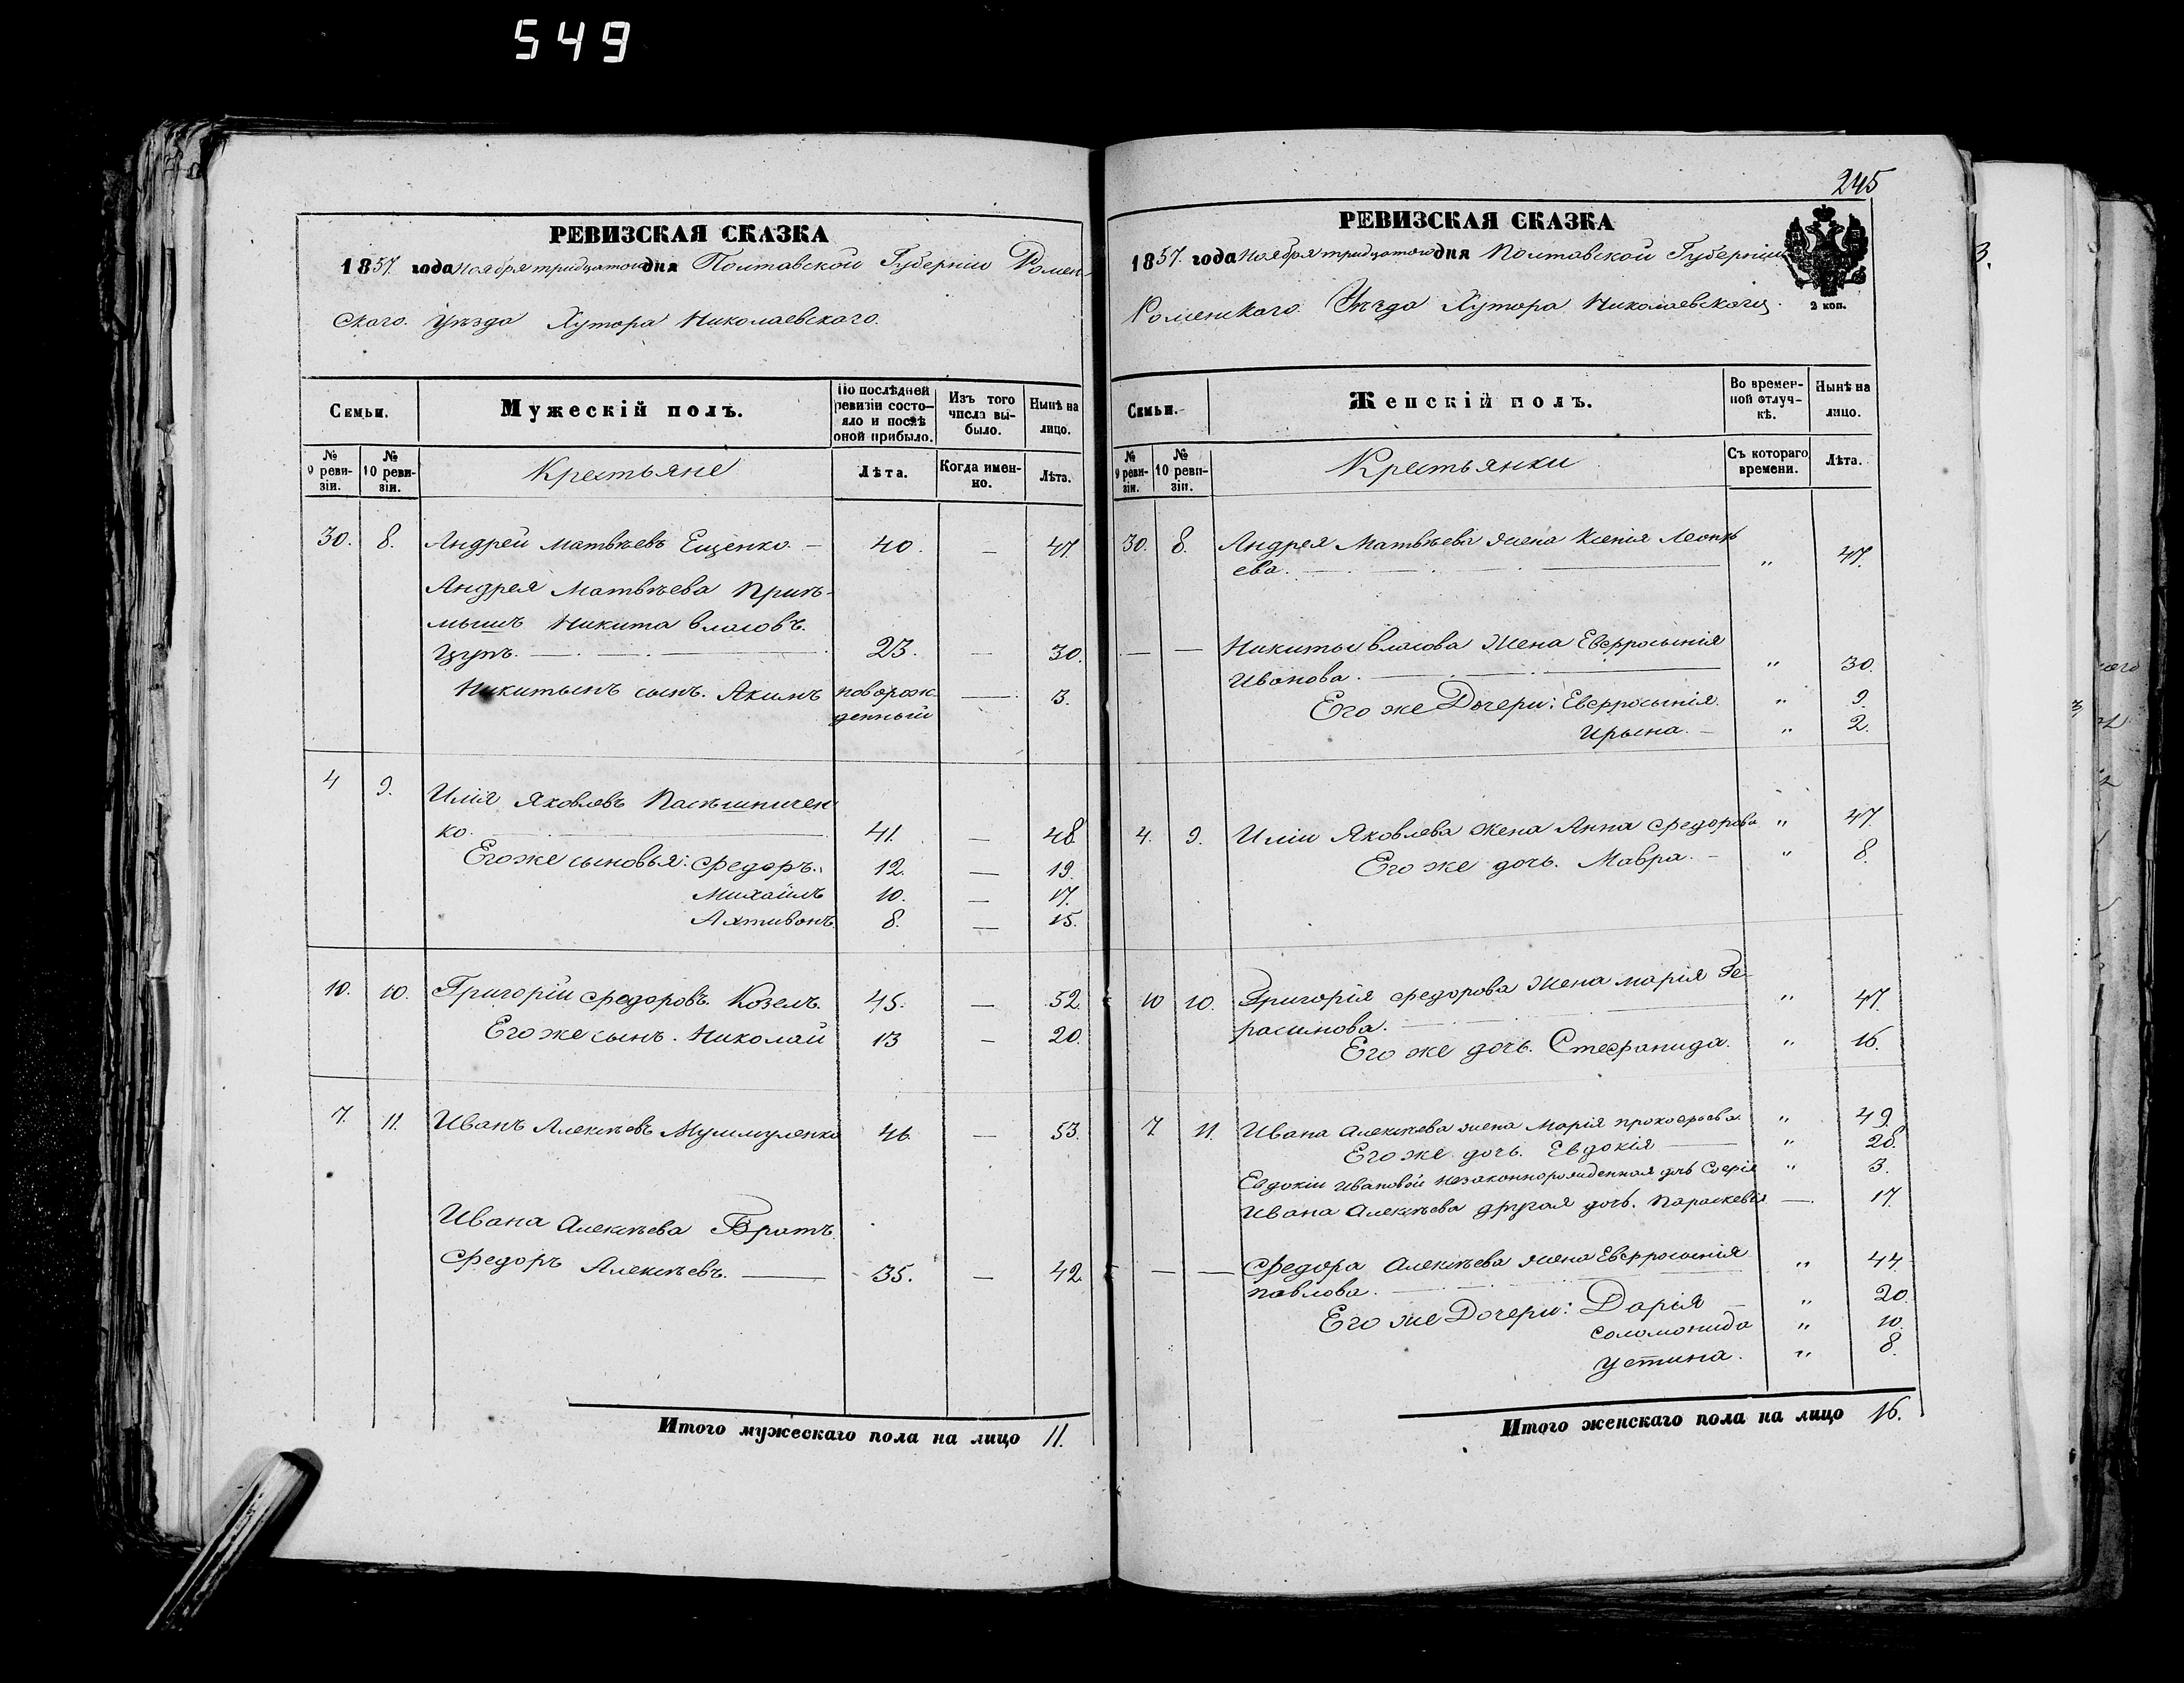 549
РЕВИЗСКАЯ СКАЗКА
1857. года Ноября тридцатого дня Полтавской Губерніи Ромен-
скаго. Уѣзда Хутора Николаевскаго.
Семьи.
Мужескій полъ.
По послѣдней ревизіи состо-яло и послѣ оной прибыло.
Изъ того числа вы-было.
Нынѣ на лицо.
№ 9 реви-зіи.
№ 10 реви-зіи.
Крестьяне
Лѣта.
Когда имен-но.
Лѣта.
30. 8. Андрей Матвѣевъ Ещенко. — 40. — 47.
Андрея Матвѣева Пріи-
мышъ Никита Власовъ.
Цупъ. — 23. — 30.
Никитынъ сынъ. Акимъ новорож — 3.
денный
4 9. Илія Яковлевъ Пасѣшничен
ко. 41. — 48
Его же сыновья: Федоръ. 12. — 19.
Михаилъ 10. — 17.
Ахтивонъ 8. — 15.
10. 10. Григорій Федоровъ Козелъ. 45. — 52.
Его же сынъ. Николай 13 — 20.
7. 11. Иванъ Алексѣевъ 46. — 53.
Ивана Алексѣева Братъ
Федоръ Алексѣевъ. — 35. — 42.
Итого мужескаго пола на лицо 11.
245
РЕВИЗСКАЯ СКАЗКА
1857. года Ноября тридцатого дня Полтавской Губерніи
Роменскаго. Уѣзда Хутора Николаевскаго.
2 коп.
Семьи.
Женскій полъ.
Во времен-ной отлуч-кѣ.
Нынѣ на лицо.
№ 9 реви-зіи.
№ 10 реви-зіи.
Крестьянки
Съ котораго времени.
Лѣта.
30. 8. Андрея Матвѣева жена Ксенія Леонть
ева. — " 47.
— — Никиты Власова Жена Евфросынія
Иванова. — " 30.
Его же Дочери: Евфросынія. " 9.
Ирына. — " 2.
4. 9. Иліи Яковлева жена Анна Федорова " 47.
Его же дочь. Мавра. — " 8.
10 10. Григорія Федорова Жена Марія Ге-
расимова. — " 47.
Его же дочь. Стефанида. " 16.
7. 11. Ивана Алексѣева жена Марія Прокофьева. " 49.
Его же дочь. Евдокія — " 28.
Евдокіи Ивановой незаконнорожденная дочь Софія " 3.
Ивана Алексѣева другая дочь. Параскевія — 17.
— — Федора Алексѣева жена Евфросынія
Павлова. — " 44
Его же Дочери: Дарія — " 20.
Соломонида " 10.
Устина. " 8.
Итого женскаго пола на лицо 16.